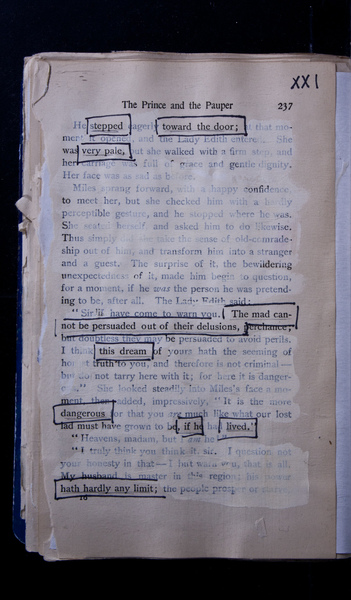 XXI
The Prince and the Pauper 237
He stepped eagerly toward the door; at that mo-
ment it opened, and the Lady Edith entered. She
was very pale, but she walked with a firm step, and
her carriage was full of grace and gentle dignity.
Her face was as sad as before.
Miles sprang forward, with a happy confidence,
to meet her, but she checked him with a hardly
perceptible gesture, and he stopped where he was.
She seated herself, and asked him to do likewise.
Thus simply did she take the sense of old-comrade-
ship out of him, and transform him into a stranger
and a guest. The surprise of it, the bewildering
unexpectedness of it, made him begin to question,
for a moment, if he was the person he was pretend-
ing to be, after all. The Lady Edith said:
"Sir, I have come to warn you. The mad can-
not be persuaded out of their delusions, perchance;
but doubtless they may be persuaded to avoid perils.
I think this dream of yours hath the seeming of
honest truth to you, and therefore is not criminal—
but do not tarry here with it; for here it is danger-
She looked steadily into Miles's face a mo-
ment, then added, impressively, "It is the more
dangerous for that you are much like what our lost
lad must have grown to be, if he had lived."
"Heavens, madam, but I am he!"
"I truly think you think it, sir. I question not
your honesty in that—I but warn you, that is all.
My husband is master in this region; his power
hath hardly any limit; the people prosper or starve